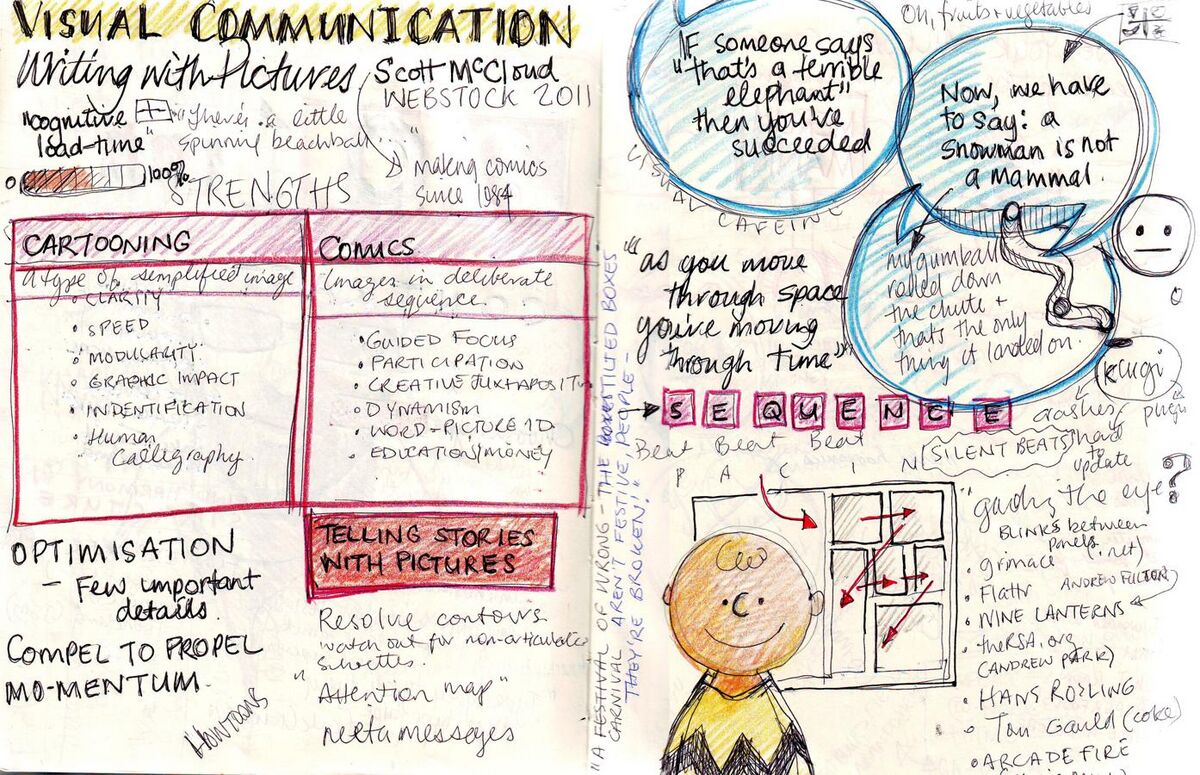 VISUAL COMMUNICATION
Writing with Pictures, Scott McCloud
WEBSTOCK 2011
"cognitive load-time"
"There's a little
spinning beachball..."
making comics
since 1984
0 100%
STRENGTHS
CARTOONING
A type of simplified image
CLARITY
SPEED
MODULARITY
GRAPHIC IMPACT
INDENTIFICATION
Human
Calligraphy.
COMICS
Images in deliberate
sequence.
GUIDED FOCUS
PARTICIPATION
CREATIVE JUXTAPOSIT
DYNAMISM
WORD-PICTURE ID
EDUCATION/MONEY
OPTIMISATION
- Few important
details.
COMPEL TO PROPEL
MO-MENTUM.
Howtoons
TELLING STORIES
WITH PICTURES
Resolve contours
watch out for non-articulate
"Attention map"
"A FESTIVAL OF WRONG - THE TILTED BOXES
CARNIVAL AREN'T FESTIVE, PEOPLE -
THEY'RE BROKEN!"
Oh, fruits + vegetables
IF someone says
"that's a terrible
elephant"
then you've
succeeded
Now, we have
to say: a
snowman is not
a mammal.
VISUAL CAFEINE
my gumball
rolled down
the chute +
that's the only
thing it landed on.
"as you move
through space
you're moving
through time"
klugi
crashes
plugin
hard
to
update
SEQUENCE
Beat Beat Beat
SILENT BEATS
PACIN
"guiding the eye?
BLINKS between
panels
(.net)
grimace
Flattr
ANDREW FULTON
NINE LANTERNS
theRSA.org
(ANDREW PARK)
HANS ROSLING
Tom Gauld (coke)
ARCADE FIRE